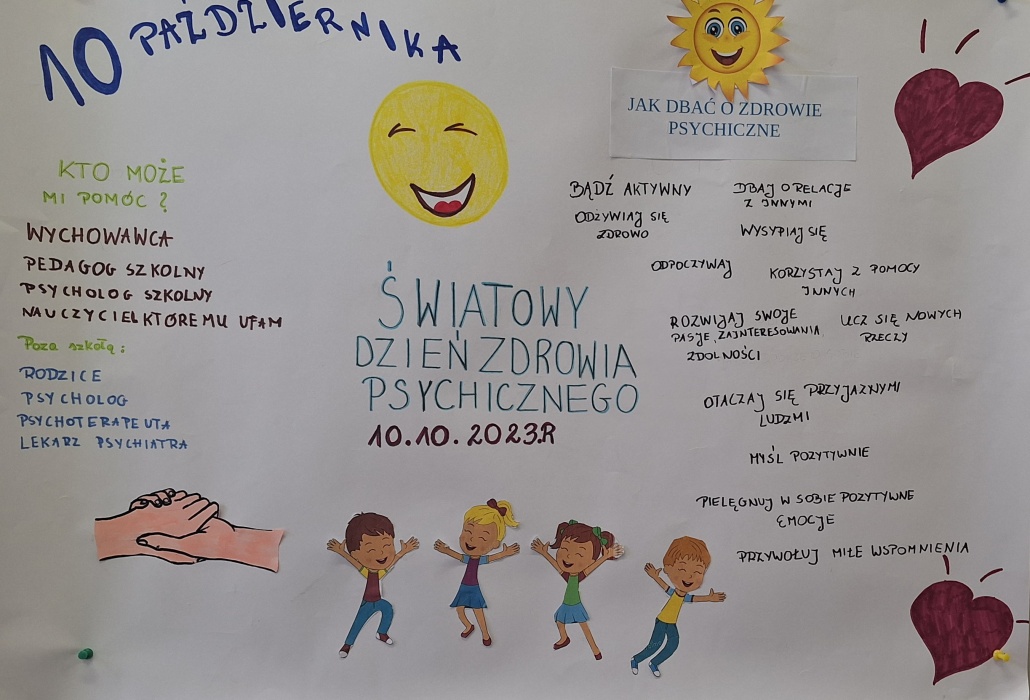 10 PAŹDZIERNIKA
KTO MOŻE
MI POMÓC ?
WYCHOWAWCA
PEDAGOG SZKOLNY
PSYCHOLOG SZKOLNY
NAUCZYCIEL KTÓREMU UFAM
Poza szkołą :
RODZICE
PSYCHOLOG
PSYCHOTERAPEUTA
LEKARZ PSYCHIATRA
ŚWIATOWY
DZIEŃ ZDROWIA
PSYCHICZNEGO
10.10.2023.R
JAK DBAĆ O ZDROWIE
PSYCHICZNE
BĄDŹ AKTYWNY
ODŻYWIAJ SIĘ
ZDROWO
DBAJ O RELACJE
Z INNYMI
WYSYPIAJ SIĘ
ODPOCZYWAJ
KORZYSTAJ Z POMOCY
INNYCH
ROZWIJAJ SWOJE
PASJE, ZAINTERESOWANIA,
ZDOLNOŚCI
UCZ SIĘ NOWYCH
RZECZY
OTACZAJ SIĘ PRZYJAZNYMI
LUDZMI
MYŚL POZYTYWNIE
PIELĘGNUJ W SOBIE POZYTYWNE
EMOCJE
PRZYWOŁUJ MIŁE WSPOMNIENIA